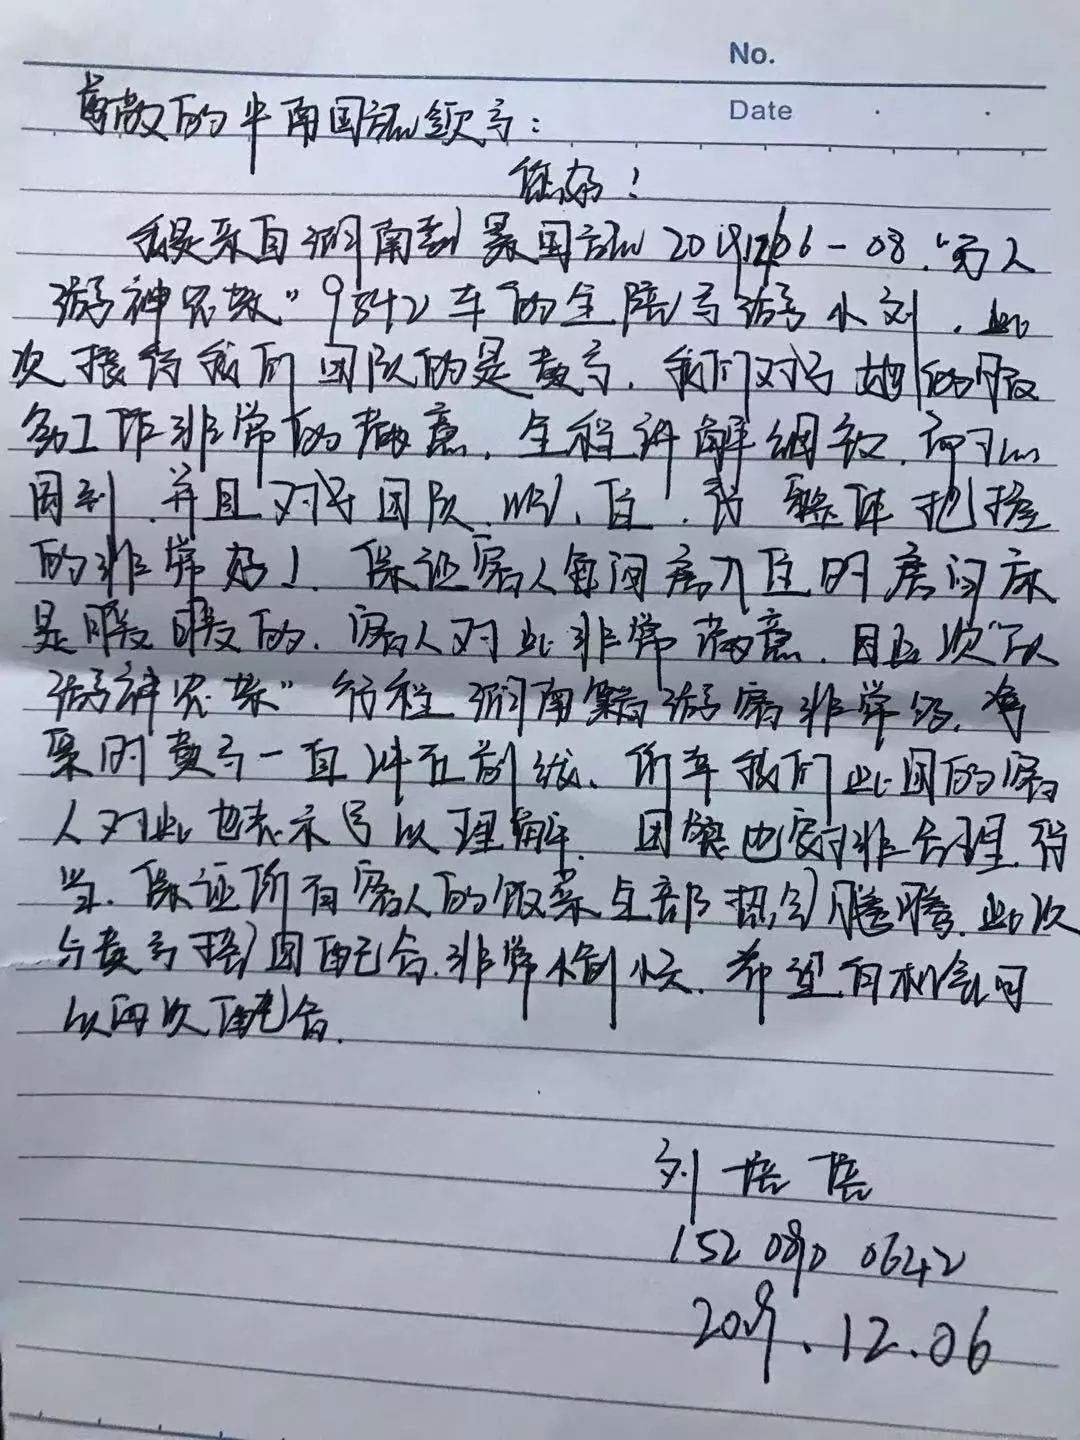 No.
Date
尊敬的中南国旅领导:
您好!
我是来自湖南 国旅20191206-08."万人
游神农架"9542车的全陪导游小刘.此
次接待我们团队的是黄导.我们对于她的服
务工作非常的满意.全程讲解细致,
周到.并且对于团队吃、住、行整体把握
的非常好!保证客人每间房入住时房间床
是暖暖的.客人对此非常满意.因此次"万人
游神农架"行程湖南籍游客非常多.
黄导一直冲在前线.所幸我们此团的客
人对此也表示予以理解.团餐也安排合理得
当.保证所有客人的饭菜全部热气腾腾.此次
与黄导接团配合非常愉快.希望有机会可
以再次配合.
刘培培
152 0890 0642
2019.12.06